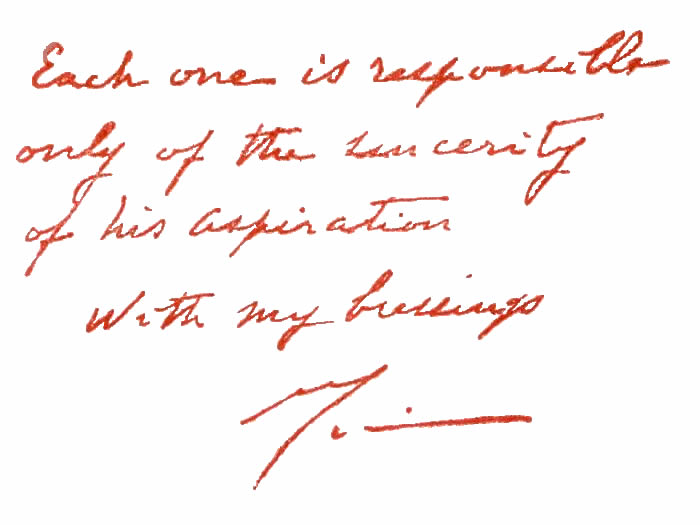 Each one is responsible
only of the sincerity
of his aspiration
With my blessings